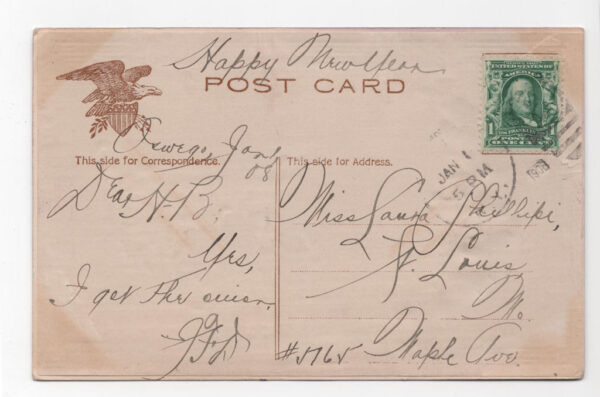 Happy New Year
POST CARD
Oswego, Jan 1
08
This side for Correspondence.
This side for Address.
Dear H. B.
Yes,
I got the onion.
J F D
Miss Laura Phillipi,
St. Louis
Mo.
#5765 Maple Ave.
UNITED STATES OF
AMERICA
FRANKLIN
POSTAGE
1
ONE CENT
JAN 1
5 PM
1908